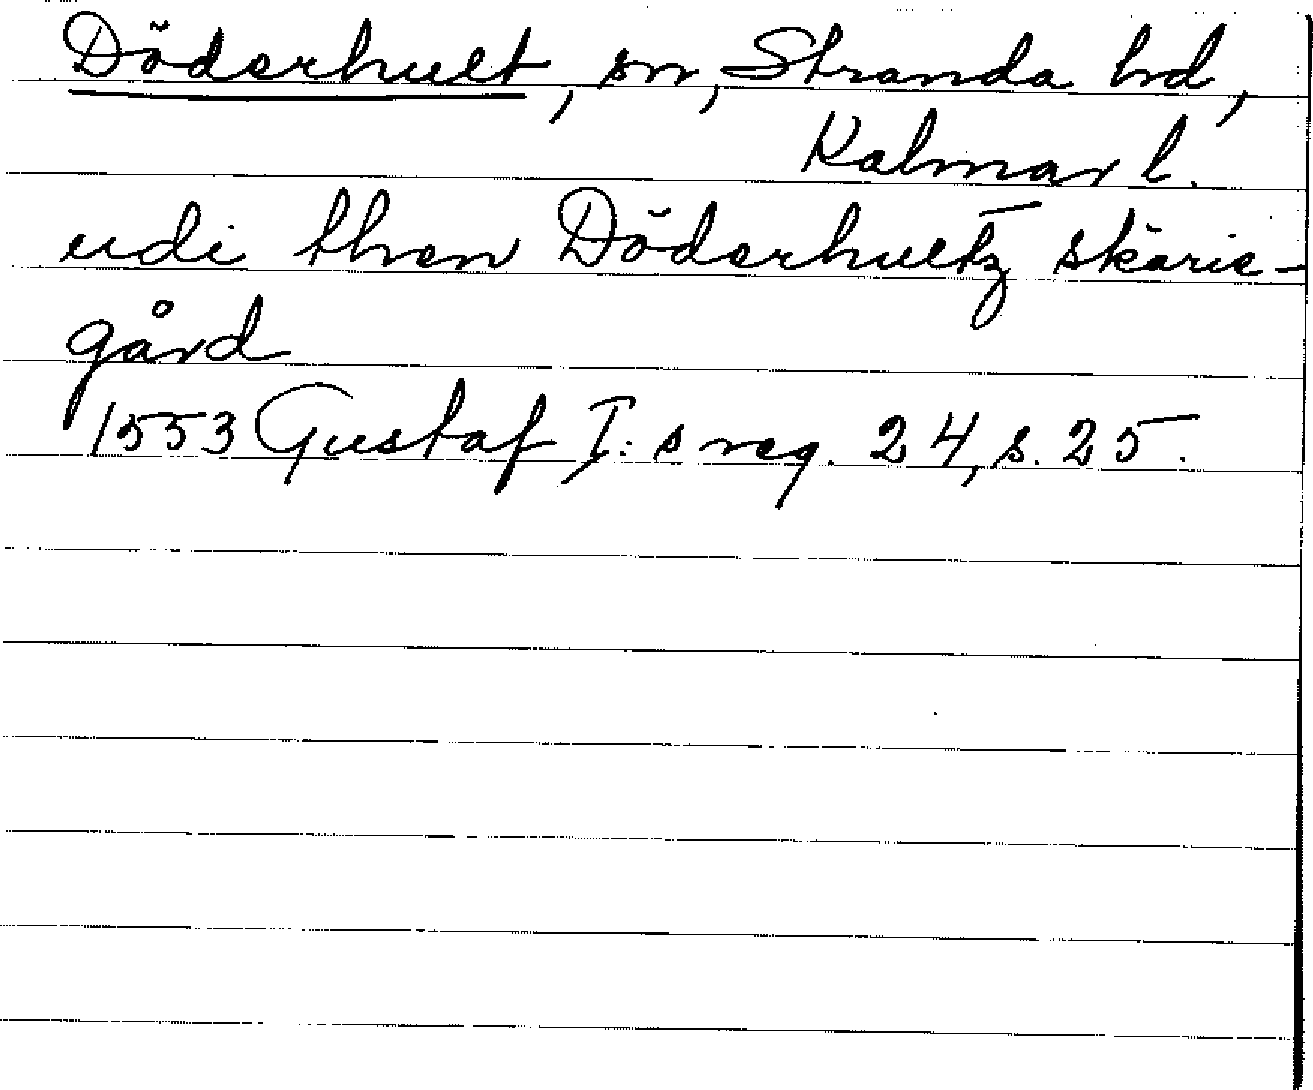 Döderhult, sn, Stranda hd,
Kalmar l.
udi then Döderhultz skärie-
gård
1553 Gustaf I:s reg. 24, s. 25.